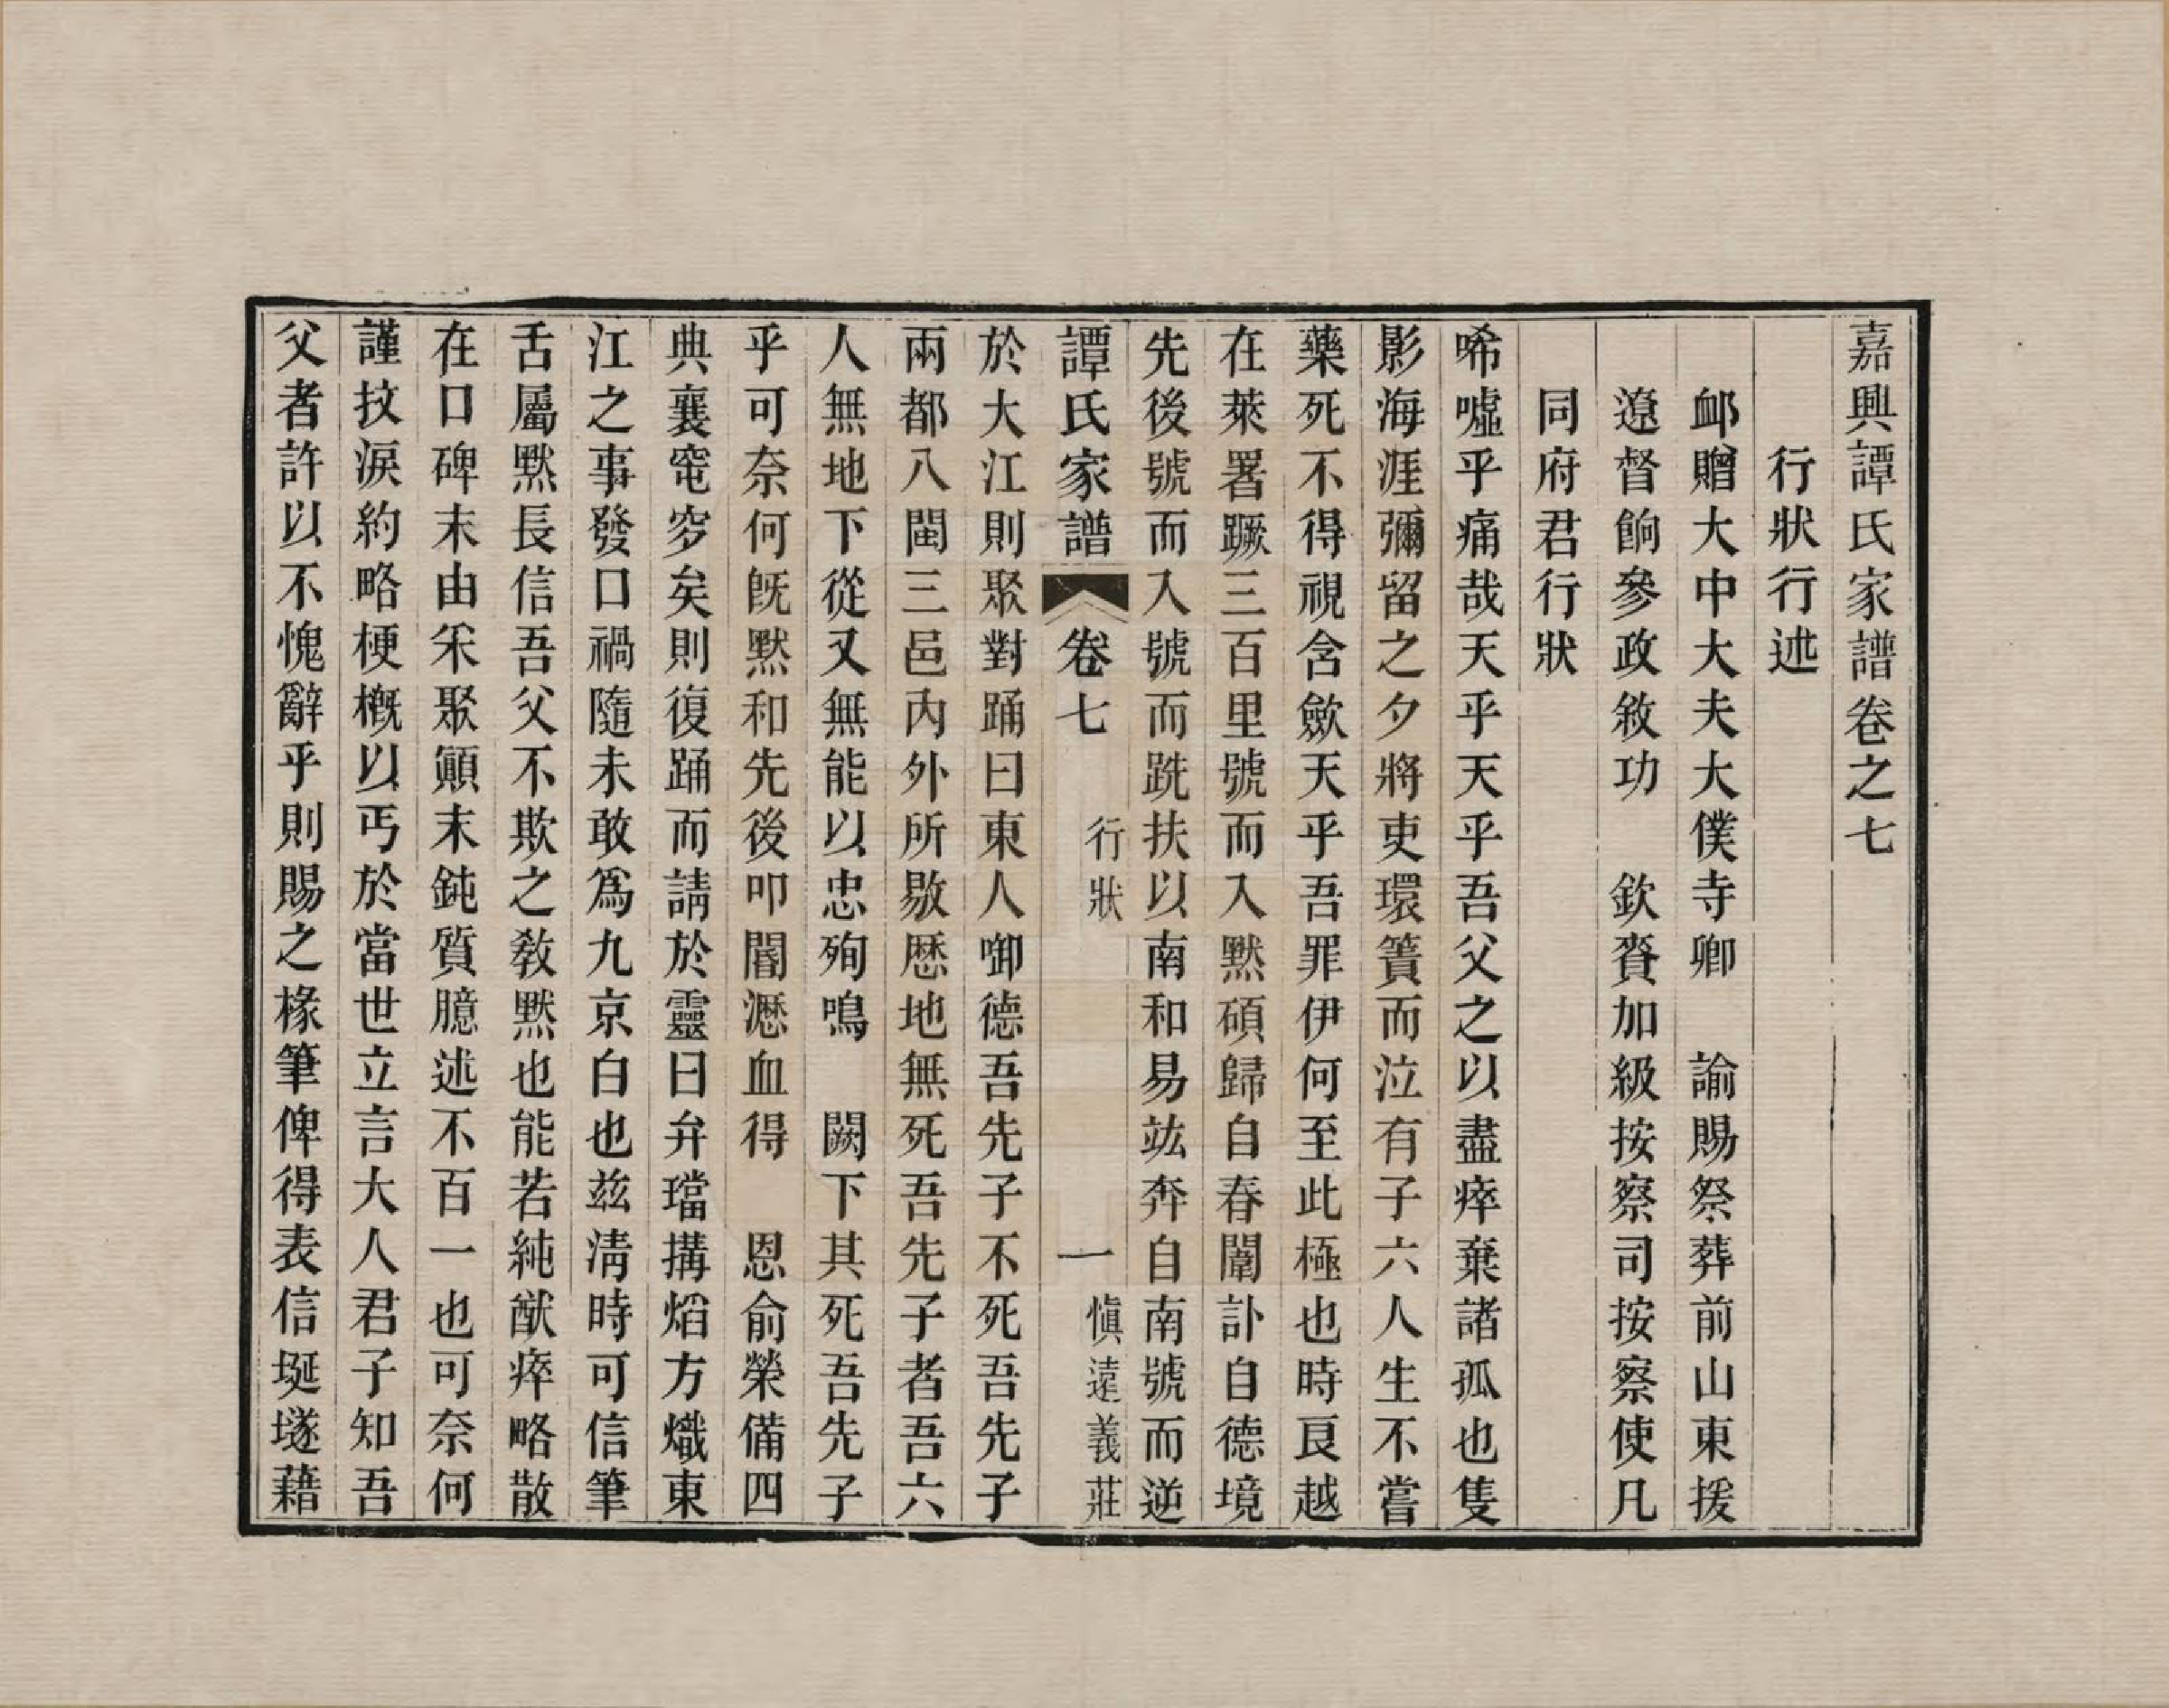 嘉興譚氏家譜卷之七
行狀行述
卹贈大中大夫大僕寺卿 諭賜祭葬前山東援
遼督餉參政敘功 欽賚加級按察司按察使凡
同府君行狀
唏噓乎痛哉天乎天乎吾父之以盡瘁棄諸孤也隻
影海涯彌留之夕將吏環簀而泣有子六人生不嘗
藥死不得視含歛天乎吾罪伊何至此極也時艮越
在萊署蹶三百里號而入默碩歸自春闈訃自德境
先後號而入號而跣扶以南和易竑奔自南號而逆
譚氏家譜 卷七 行狀 一 愼遠義莊
於大江則聚對踊曰東人啣德吾先子不死吾先子
兩都八閩三邑內外所敭歷地無死吾先子者吾六
人無地下從又無能以忠殉鳴 闕下其死吾先子
乎可奈何旣默和先後叩閽瀝血得 恩俞榮備四
典襄窀穸矣則復踊而請於靈曰弁璫搆焰方熾東
江之事發口禍隨未敢爲九京白也玆淸時可信筆
舌屬默長信吾父不欺之教默也能若純猷瘁略散
在口碑末由采聚顚末鈍質臆述不百一也可奈何
謹抆淚約略梗槪以丐於當世立言大人君子知吾
父者許以不愧辭乎則賜之椽筆俾得表信埏墜藉